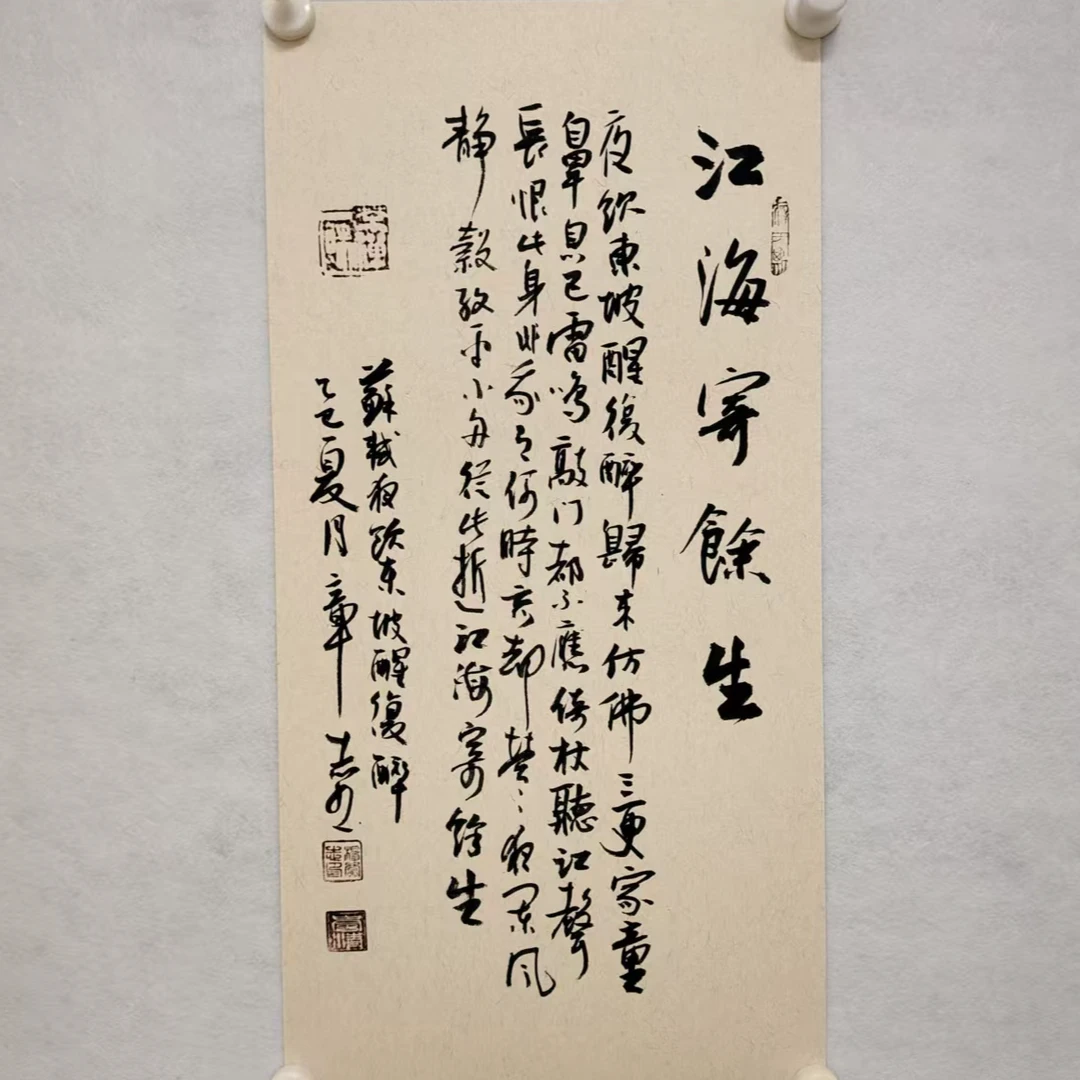 江海寄餘生
夜飲東坡醒復醉歸来仿佛三更家童
鼻息已雷鳴敲门都不應倚杖聽江聲
長恨此身非我有何時忘却營〻夜闌风
静縠紋平小舟從此逝江海寄餘生
蘇軾夜飲東坡醒復醉
乙巳夏月章志